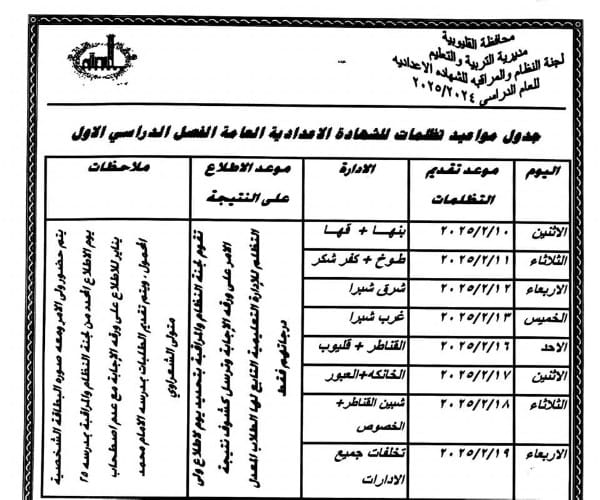 محافظة القليوبية
مديرية التربية والتعليم
لجنة النظام والمراقبه للشهاده الاعداديه
للعام الدراسي ٢٠٢٥/٢٠٢٤
جدول مواعيد تظلمات للشهادة الاعدادية العامة الفصل الدراسي الاول
اليوم
موعد تقديم التظلمات
الادارة
موعد الاطلاع على النتيجة
ملاحظات
الاثنين ٢٠٢٥/٢/١٠ بنهــا + قهــا
الثلاثاء ٢٠٢٥/٢/١١ طوخ + كفر شكر
الاربعاء ٢٠٢٥/٢/١٢ شرق شبرا
الخميس ٢٠٢٥/٢/١٣ غرب شبرا
الاحد ٢٠٢٥/٢/١٦ القناطر + قليوب
الاثنين ٢٠٢٥/٢/١٧ الخانكه+العبور
الثلاثاء ٢٠٢٥/٢/١٨ شبين القناطر+
الخصوص
الاربعاء ٢٠٢٥/٢/١٩ تخلفات جميع
الادارات
تقوم لجنة النظام والمراقبة بتحديد يوم لاطلاع ولى
الامر على ورقه الإجابة وترسل كشوف نتيجة
التظلم للإدارة التعليمية التابع لها الطلاب المعدل
درجاتهم فقط
يتم حضور ولى الامر ومعه صوره البطاقة الشخصية
يوم الاطلاع المحدد من لجنة النظام والمراقبة بمدرسه ٢٥
يناير للاطلاع على ورقه الإجابة مع عدم اصطحاب
المحمول . ويتم تقديم الطلبات بمدرسه الامام محمد
متولى الشعراوي